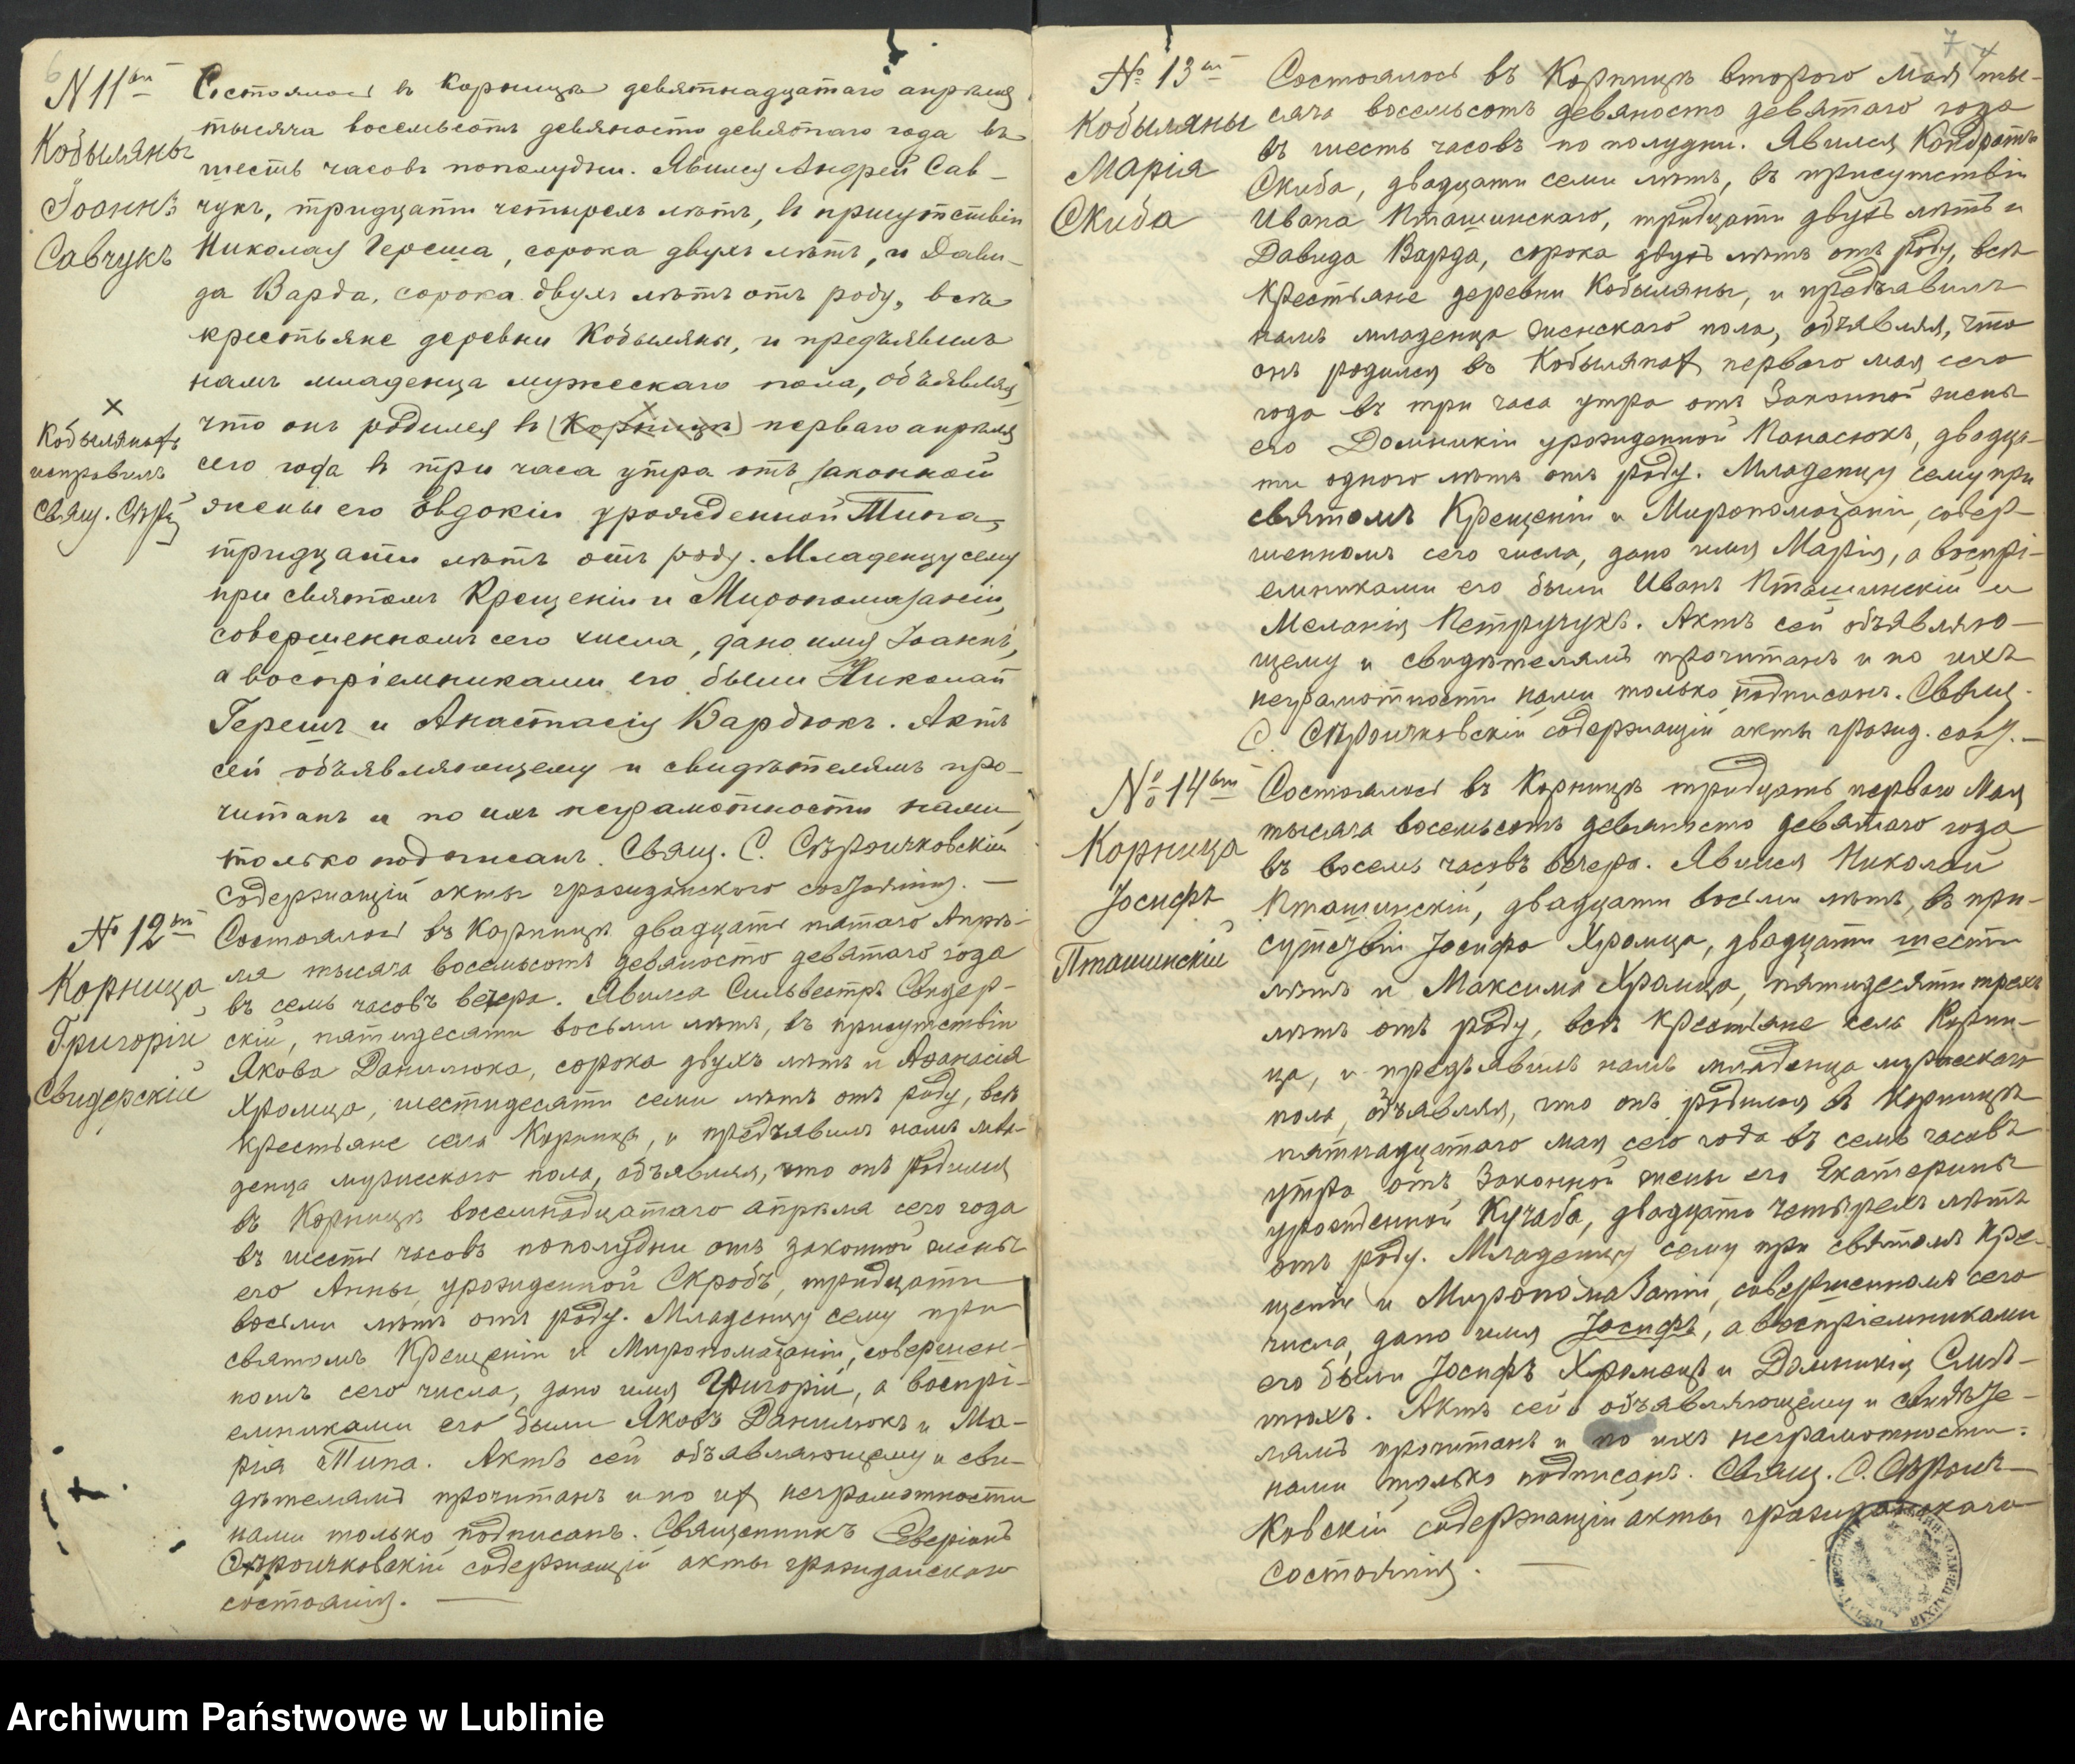 6
N 11ый
Кобыляны
Іоаннъ
Савчукъ
Состоялось въ Корницѣ девятнадцатаго апрѣля
тысяча восемьсотъ девяносто девятаго года въ
шесть часовъ пополудни. Явился Андрей Сав-
чукъ, тридцати четырехъ лѣтъ, въ присутствіи
Николая Гереша, сорока двухъ лѣтъ, и Дави-
да Варда, сорока двухъ лѣтъ отъ роду, всѣ
крестьяне деревни Кобыляны, и предъявилъ
намъ младенца мужескаго пола, объявляя,
что онъ родился въ (Корницѣ) перваго апрѣля
сего года въ три часа утра отъ законной
жены его Овдокіи урожденной Типа,
тридцати лѣтъ отъ роду. Младенцу сему
при святомъ Крещеніи и Миропомазаніи,
совершенномъ сего числа, дано имя Іоаннъ,
а воспріемниками его были Николай
Герешъ и Анастасія Вардзюкъ. Актъ
сей объявляющему и свидѣтелямъ про-
читанъ и по ихъ неграмотности нами
только подписанъ. Свящ. С. Сѣроичковскій
содержащій акты гражданскаго состоянія. —
×
Кобылянахъ
исправилъ
Свящ.
№ 12ый
Корница
Григорій
Свидерскій
Состоялось въ Корницѣ двадцать пятаго Апрѣ-
ля тысяча восемьсотъ девяносто девятаго года
въ семь часовъ вечера. Явился Сильвестръ Свидер-
скій, пятидесяти восьми лѣтъ, въ присутствіи
Якова Данилюка, сорока двухъ лѣтъ и Аѳанасія
Хромца, шестидесяти семи лѣтъ отъ роду, всѣ
крестьяне села Корница, и предъявилъ намъ мла-
денца мужескаго пола, объявляя, что онъ родился
въ Корницѣ восемнадцатаго апрѣля сего года
въ шесть часовъ пополудни отъ законной жены
его Анны, урожденной Скробъ, тридцати
восьми лѣтъ отъ роду. Младенцу сему при
святомъ Крещеніи и Миропомазаніи, совершен-
номъ сего числа, дано имя Григорій, а воспрі-
емниками его были Яковъ Данилюкъ и Ма-
рія Типа. Актъ сей объявляющему и сви-
дѣтелямъ прочитанъ и по их неграмотности
нами только подписанъ. Священникъ Северіанъ
Сѣроичковскій содержащій акты гражданскаго
состоянія. —
7
№ 13ый
Кобыляны
Марія
Скиба
Состоялось въ Корницѣ второго мая ты-
сяча восемьсотъ девяносто девятаго года
въ шесть часовъ по полудни. Явился Кондратъ
Скиба, двадцати семи лѣтъ, въ присутствіи
Ивана Пташинскаго, тридцати двухъ лѣтъ и
Давида Варда, сорока двухъ лѣтъ отъ роду, всѣ
крестьяне деревни Кобыляны, и предъявилъ
намъ младенца женскаго пола, объявляя, что
онъ родился въ Кобылянах перваго мая сего
года въ три часа утра отъ Законной жены
его Домникіи урожденной Панасюкъ, двадца-
ти одного лѣтъ отъ роду. Младенцу сему при
святомъ Крещеніи и Миропомазаніи, совер-
шенномъ сего числа, дано имя Марія, а воспрі-
емниками его были Иванъ Пташинскій и
Меланія Петручукъ. Актъ сей объявляю-
щему и свидѣтелямъ прочитанъ и по ихъ
неграмотности нами только подписанъ. Свящ.
С. Сѣроичковскій содержащій акты гражд. сост. —
№ 14ый
Корница
Іосифъ
Пташинскій
Состоялось въ Корницѣ тридцать перваго Мая
тысяча восемьсотъ девяносто девятаго года
въ восемь часовъ вечера. Явился Николай
Пташинскій, двадцати восьми лѣтъ, въ при-
сутствіи Іосифа Хромца, двадцати шести
лѣтъ и Максима Хромца, пятидесяти трехъ
лѣтъ отъ роду, всѣ крестьяне села Корни-
ца, и предъявилъ намъ младенца мужескаго
пола, объявляя, что онъ родился въ Корницѣ
пятнадцатаго мая сего года въ семь часовъ
утра отъ Законной жены его Екатерины
урожденной Кучаба, двадцати четырехъ лѣтъ
отъ роду. Младенцу сему при святомъ Кре-
щеніи и Миропомазаніи, совершенномъ сего
числа, дано имя Іосифъ, а воспріемниками
его были Іосифъ Хромецъ и Домникія
Актъ сей объявляющему и свидѣте-
лямъ прочитанъ и по ихъ неграмотности
нами только подписанъ. Свящ. С. Сѣроич-
ковскій содержащій акты гражданскаго
состоянія. —
Archiwum Państwowe w Lublinie